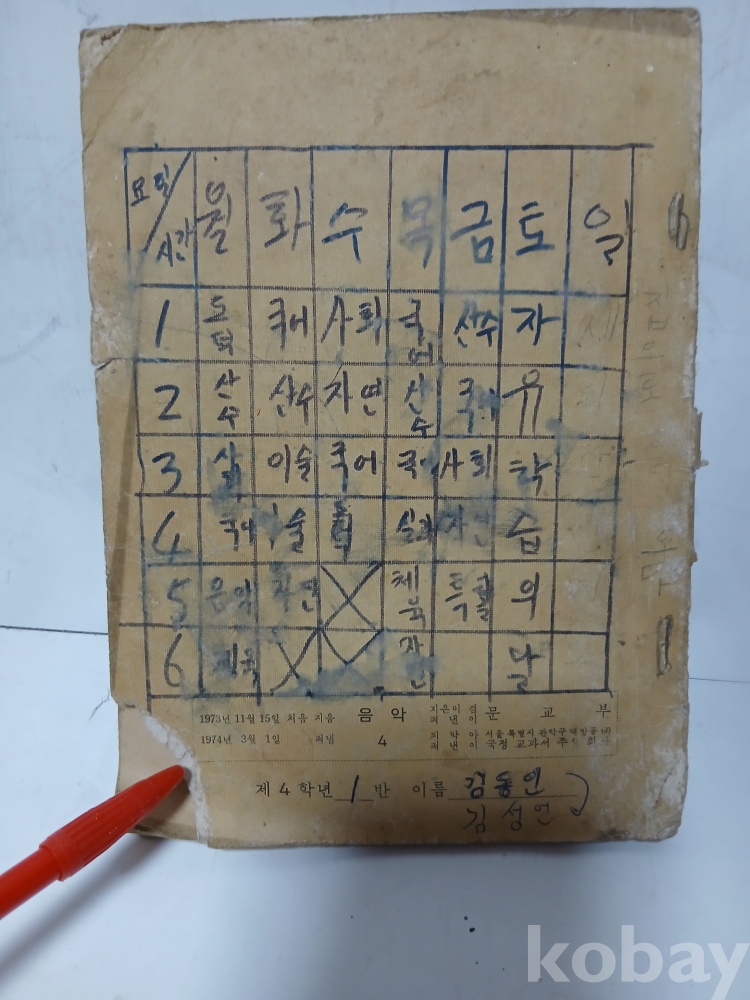 요일/시간 월 화 수 목 금 토 일
1 도덕 국어 사회 국어 산수 자
2 산수 산수 자연 산수 국어 유
3 국어 국어 사회 학
4 국어 도덕 실과 자연 습
5 음악 자연 X 체육 특활 의
6 체육 X X 자연 날
1973년 11월 15일 처음 지음
1974년 3월 1일 펴냄
음 악
4
지은이 겸 펴낸이 문 교 부
서울특별시 관악구 대방동
국정 교과서 주식 회사
제 4 학년 1 반 이름 김동인
김성언
kobay